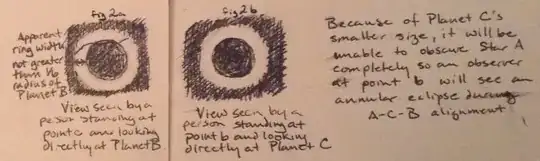 Fig 2a
Apparent
ring width
not greater
than 1/6
radius of
Planet B
View seen by a
person standing at
point c and looking
directly at Planet B
Fig 2b
View seen by a
person standing at
point b and looking
directly at Planet C
Because of Planet C's
smaller size, it will be
unable to obscure Star A
completely so an observer
at point b will see an
annular eclipse during
A-C-B alignment